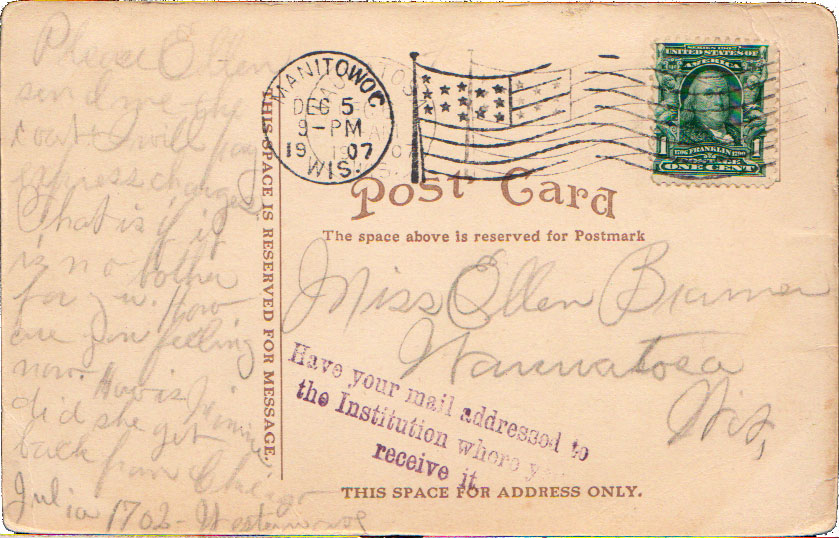 Please Ellen
send my
coat I will pay
express charges
That is if it
is no bother
for you. How
are you feeling
now. How is Minnie
did she get
back from Chicago
Julia 1702-
THIS SPACE IS RESERVED FOR MESSAGE.
MANITOWOC
DEC 5
9-PM
1907
WIS.
SERIES 1902
UNITED STATES OF
AMERICA
1 1706 FRANKLIN 1790 1
POSTAGE
ONE CENT
Post Card
The space above is reserved for Postmark
Miss Ellen
Wauwatosa
Wis,
Have your mail addressed to
the Institution where you
receive it
THIS SPACE FOR ADDRESS ONLY.